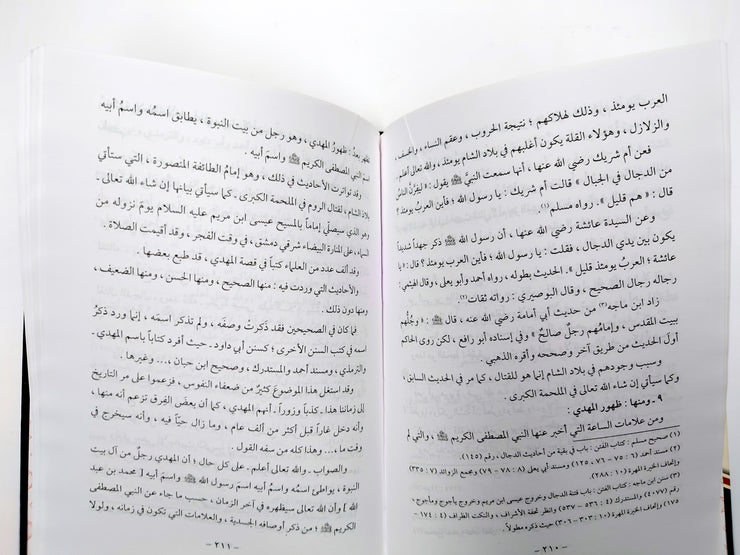 العرب يومئذ ، وذلك لهلاكهم ؛ نتيجة الحروب ، وعقم النساء ، والخسف ،
والزلازل ، وهؤلاء القلة يكون أغلبهم في بلاد الشام يومئذ ، والله تعالى أعلم .
فعن أم شريك رضي الله عنها ، أنها سمعت النبيَّ ﷺ يقول : « ليَفِرَّنَّ الناسُ
من الدجال في الجبال » قالت أم شريك : يا رسول الله ؛ فأين العربُ يومئذ ؟
قال : « هم قليل » . رواه مسلم (١) .
وعن السيدة عائشة رضي الله عنها ، أن رسول الله ﷺ ذكر جهداً شديداً
يكون بين يدي الدجال ، فقلت : يا رسول الله ؛ فأين العرب يومئذ ؟ قال : « يا
عائشة ؛ العربُ يومئذ قليل » . الحديث بطوله ، رواه أحمد وأبو يعلى ، وقال الهيثمي :
رجاله رجال الصحيح ، وقال البوصيري : رواته ثقات (٢) .
زاد ابن ماجه (٣) من حديث أبي أمامة رضي الله عنه ، قال ﷺ : « وجُلُّهم
ببيت المقدس ، وإمامُهم رجلٌ صالحٌ » وفي إسناده أبو رافع ، لكن روى الحاكم
أول الحديث من طريق آخر وصححه وأقره الذهبي .
وسبب وجودهم في بلاد الشام إنما هو للقتال ، كما مر في الحديث السابق ،
وكما سيأتي إن شاء الله تعالى في الملحمة الكبرى .
٩ ـ ومنها : ظهور المهدي :
ومن علامات الساعة التي أخبر عنها النبي المصطفى الكريم ﷺ ، والتي لم
(١) صحيح مسلم : كتاب الفتن : باب في بقية من أحاديث الدجال ، رقم (١٤٥) .
(٢) مسند أحمد (٦ : ٧٥ - ٧٦ ، ١٢٥) ومسند أبي يعلى (٨ : ٧٨ - ٧٩) ومجمع الزوائد (٧ : ٣٣٥)
وإتحاف الخيرة المهرة (١٠ : ٢٨٨) .
(٣) سنن ابن ماجه : كتاب الفتن : باب فتنة الدجال وخروج عيسى ابن مريم وخروج يأجوج ومأجوج ،
رقم (٤٠٧٧) والمستدرك (٤ : ٥٣٦ - ٥٣٧) وانظر تحفة الأشراف ، والنكت الظراف (٤ : ١٧٤ -
١٧٥) وإتحاف الخيرة المهرة (١٠ : ٣٠٣ - ٣٠٦) حيث ذكره مطولاً .
- ٢١٠ -
تظهر بعدُ : ظهورُ المهدي ، وهو رجل من بيت النبوة ، يطابق اسمُه واسمُ أبيه
اسمَ النبي المصطفى الكريم ﷺ واسمَ أبيه .
وقد تواترت الأحاديث في ذلك ، وهو إمامُ الطائفة المنصورة ، التي ستأتي
بلاد الشام ، لقتال الروم في الملحمة الكبرى ـ كما سيأتي بيانها إن شاء الله تعالى ـ
وهو الذي سيصلّي إماماً بالمسيح عيسى ابن مريم عليه السلام يومَ نزوله من
السماء ، على المنارة البيضاء شرقي دمشق ، في وقت الفجر ، وقد أقيمت الصلاة .
وقد ألف عدد من العلماء كتباً في قصة المهدي ، قد طبع بعضها .
والأحاديث التي وردت فيه : منها الصحيح ، ومنها الحسن ، ومنها الضعيف ،
ومنها دون ذلك .
فما كان في الصحيحين فقد ذَكرتْ وصفَه ، ولم تذكر اسمَه ، إنما ورد ذكرُ
اسمه في كتب السنن الأخرى ؛ كسنن أبي داود ـ حيث أفرد كتاباً باسم المهدي ـ
والترمذي ، ومسند أحمد والمستدرك ، وصحيح ابن حبان . . . وغيرها .
وقد استغل هذا الموضوعَ كثيرٌ من ضعفاء النفوس ، فزعموا على مر التاريخ
إلى زماننا هذا ـ كذباً وزوراً ـ أنهم المهدي ، كما أن بعضَ الفِرق تزعم أنه منها ،
وأنه دخل غاراً قبل أكثر من ألف عام ، وما زال حيّاً فيه ، وأنه سيخرج في
وقت ما . . . وهذا كله من سفه القول .
والصواب ـ والله تعالى أعلم ـ على كل حال ؛ أن المهدي رجلٌ من آل بيت
النبوة ، يواطئ اسمُه واسمُ أبيه اسمَ رسول الله ﷺ واسمَ أبيه [ محمد بن عبد
الله ] وأن الله تعالى سيظهره في آخر الزمان ، حسب ما جاء عن النبي المصطفى
الكريم ﷺ ؛ من ذكر أوصافه الجسدية ، والعلامات التي تكون في زمانه ، ولولا
- ٢١١ -